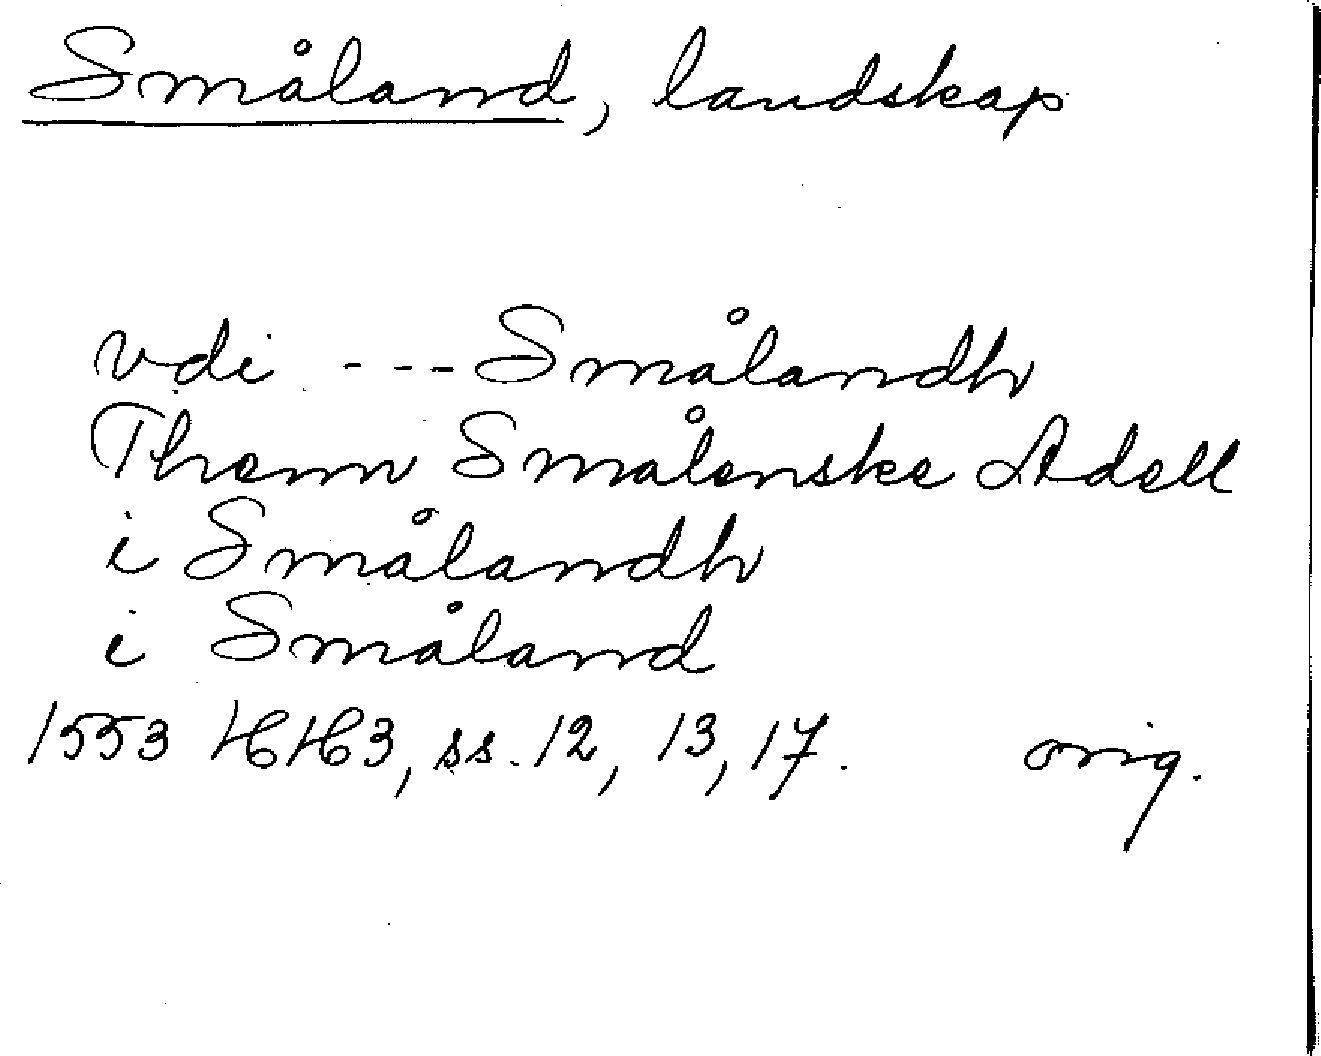 Småland, landskap
vdi --- Smålandh
Thenn Smålenske Adell
i Smålandh
i Småland
1553 HH3, ss. 12, 13, 17. orig.